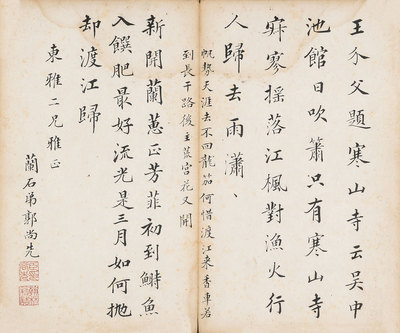 王介父題寒山寺云吳中
池館日吹簫只有寒山寺
寂寥搖落江楓對漁火行
人歸去雨瀟、
帆勢天涯去不回龍笳何惜渡江来香車若
到長干路後主荒宮花又開
新開蘭蕙正芳菲初到鰣魚
入饌肥最好流光是三月如何拋
却渡江歸
東雅二兄雅正
蘭石弟郭尚先